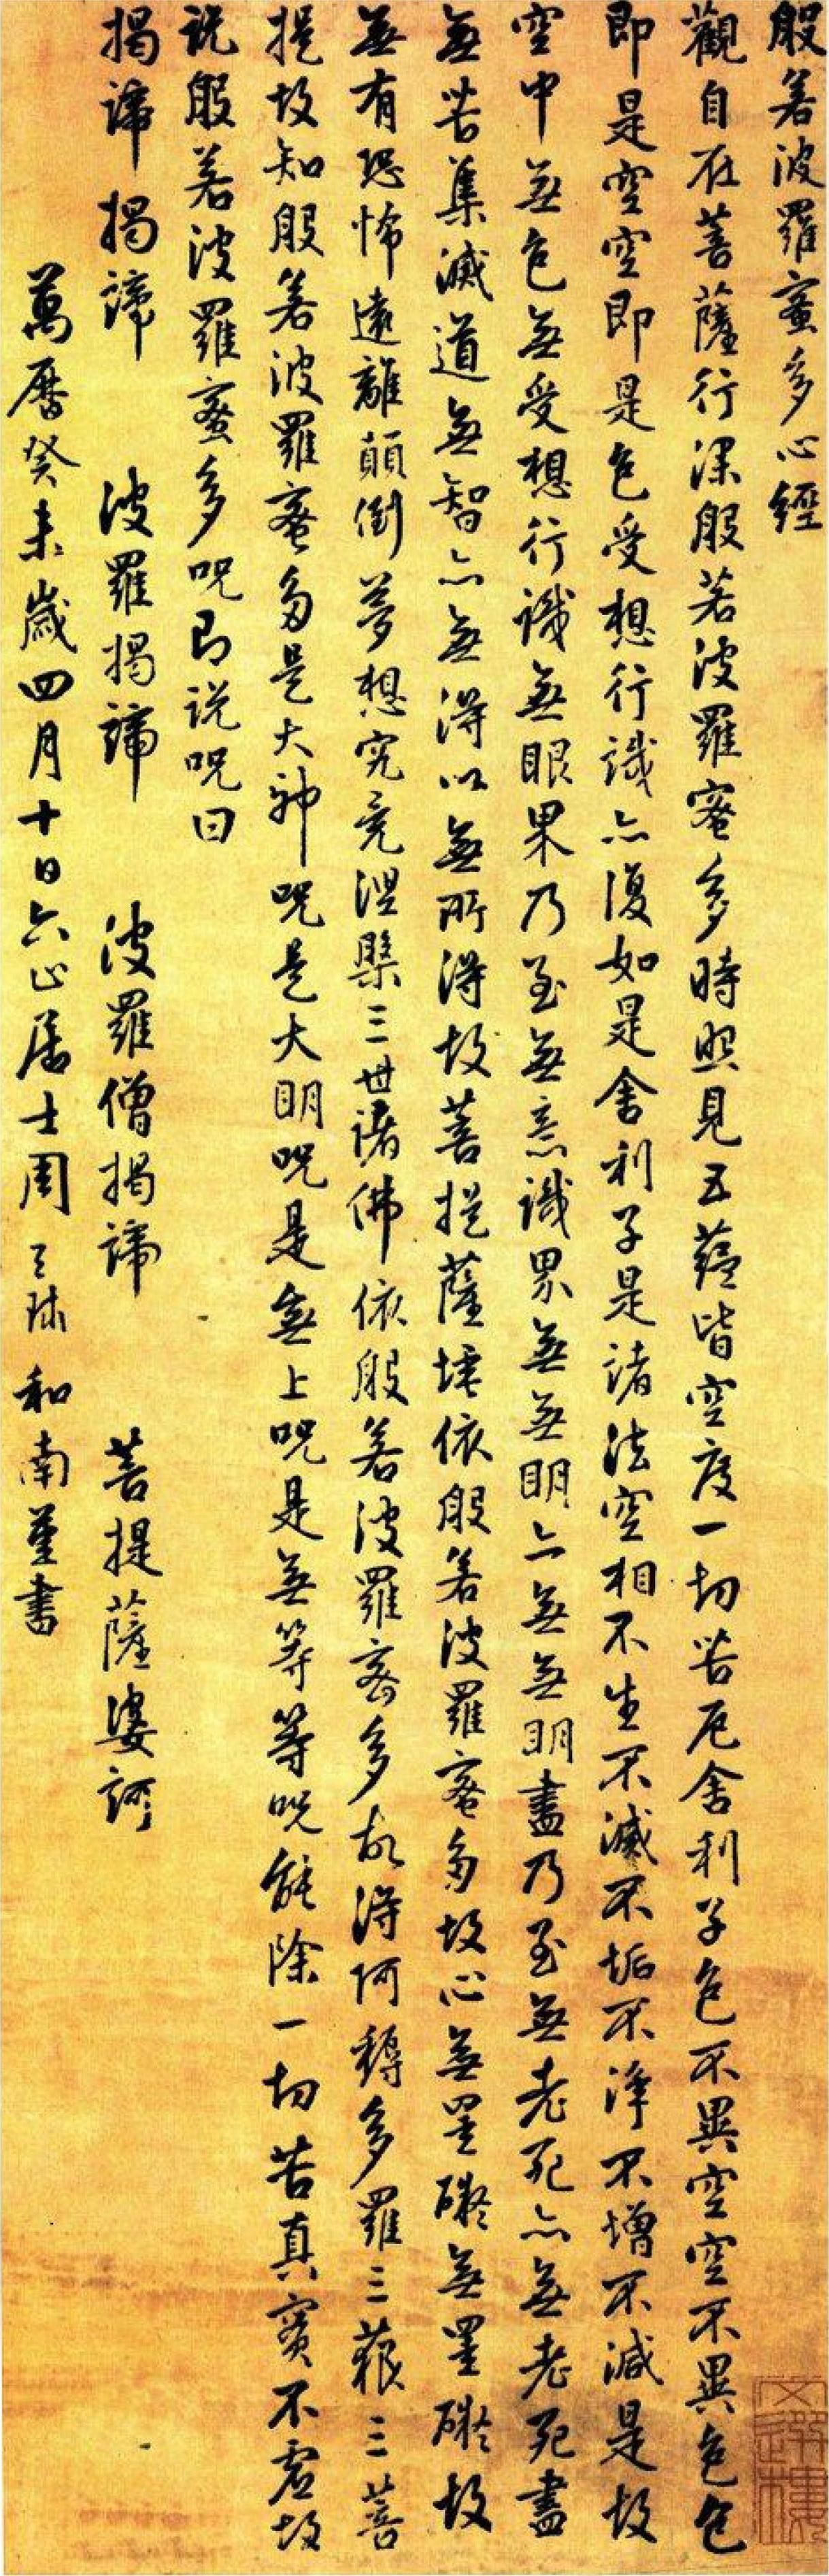 般若波羅蜜多心經
觀自在菩薩行深般若波羅蜜多時照見五蘊皆空度一切苦厄舍利子色不異空空不異色色
即是空空即是色受想行識亦復如是舍利子是諸法空相不生不滅不垢不淨不增不減是故
空中無色無受想行識無眼界乃至無意識界無無明亦無無明盡乃至無老死亦無老死盡
無苦集滅道無智亦無得以無所得故菩提薩埵依般若波羅蜜多故心無罣礙無罣礙故
無有恐怖遠離顛倒夢想究竟涅槃三世諸佛依般若波羅蜜多故得阿耨多羅三藐三菩
提故知般若波羅蜜多是大神呪是大明呪是無上呪是無等等呪能除一切苦真實不虛故
說般若波羅蜜多呪即說呪曰
揭諦揭諦 波羅揭諦 波羅僧揭諦 菩提薩婆訶
萬曆癸未歲四月十日六止居士周天球和南書
文選樓